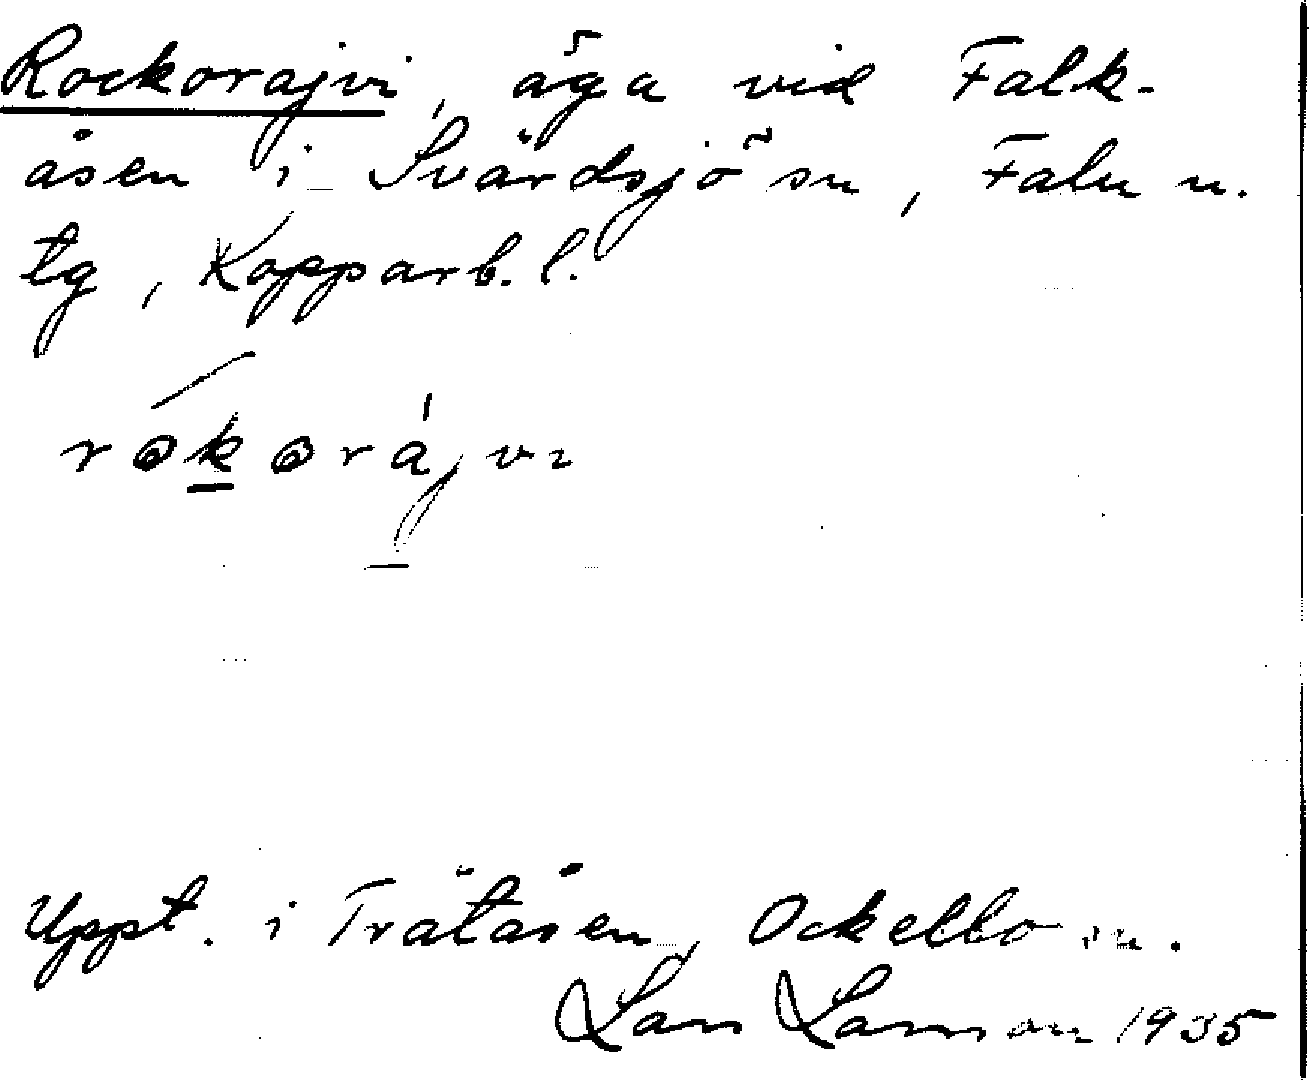 Rockorajvi, äga vid Falk-
åsen i Svärdsjö sn, Falu n.
tg, Kopparb. l.
Uppt. i Trätåsen, Ockelbo sn.
Lars Larsson 1935